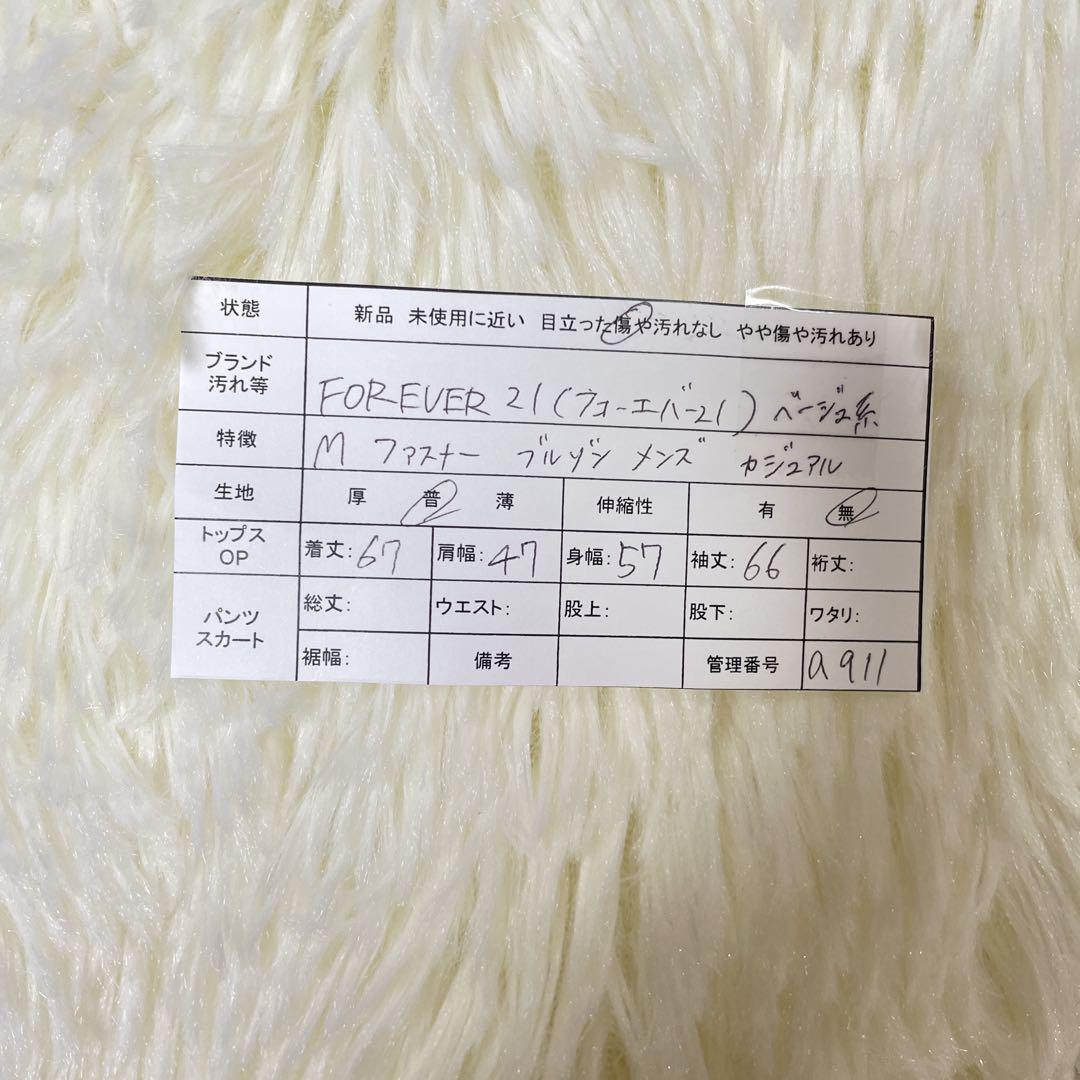 状態 新品 未使用に近い 目立った傷や汚れなし やや傷や汚れあり
ブランド
汚れ等 FOREVER 21 (フォーエバー21) ベージュ系
特徴 M ファスナー ブルゾン メンズ カジュアル
生地 厚 普 薄 伸縮性 有 無
トップス
OP 着丈:67 肩幅:47 身幅:57 袖丈:66 裄丈:
パンツ
スカート 総丈: ウエスト: 股上: 股下: ワタリ:
裾幅: 備考 管理番号 a911